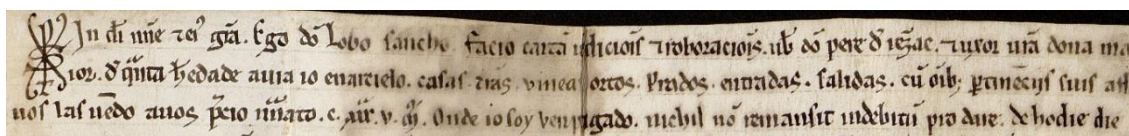 In dei nne ⁊ ei⁹ gr̃a. Ego dõ Lobo sancho. facio cartã udicioĩs ⁊ roboracioĩs. uob̃ dõ pere đ . ⁊ uxor ur̃a dona ma
ior. đ q̃nta h̃edade auia io en arcielo. casas. tr̃as. vinea ortos. Prados. entradas. salidas. cũ oĩb; ꝑtinẽcijs suis
uos las uẽdo auos p̃cio nũato. c. xx. v. m̃. Onde io soy ven pigado. nichil nõ remansit indebitũ pro dare. de hodie die